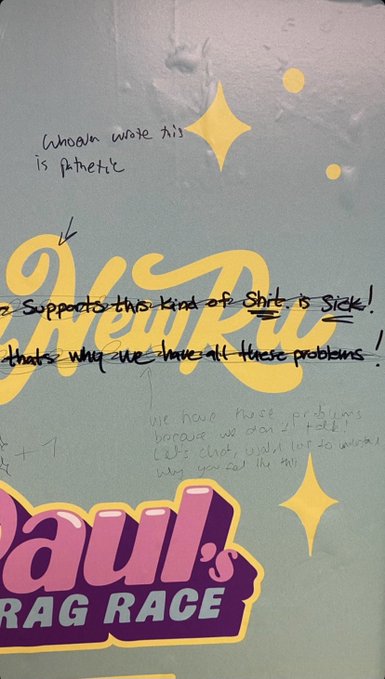 Whoever wrote this
is pathetic
New Ru
supports this kind of Shit. is Sick!
thats why we have all these problems!
we have these problems
because we don't talk!
Let's chat, would love to understand
why you feel like this
+ 1
Paul's
RAG RACE